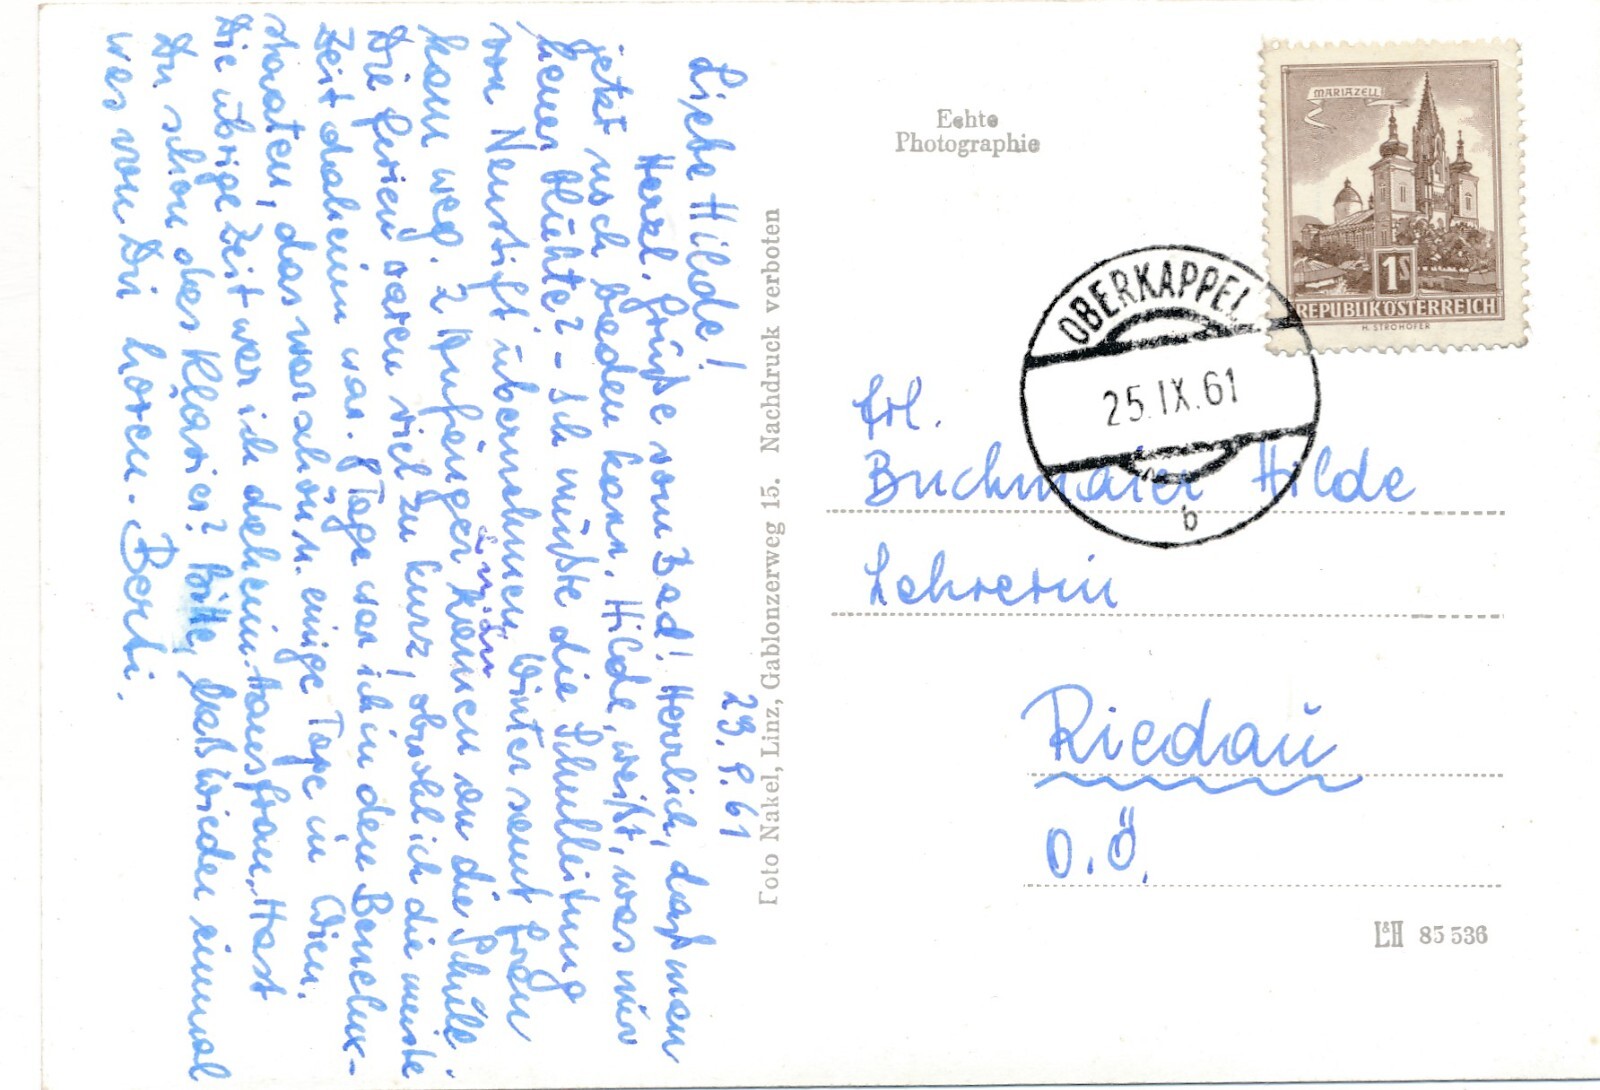 23.9.61
Liebe Hilde!
Herzl. Grüße vom Bad! Herrlich, daß man
jetzt noch baden kann. Hilde, weißt, was mir
heuer blühte? - Ich mußte die Schulleitung
von Neustift übernehmen. Winter samt Frau
kam weg. 2 Anfänger kamen an die Schule.
Die Ferien waren viel zu kurz, obwohl ich die meiste
Zeit daheim war. 8 Tage war ich in den Benelux-
staaten, das war schön u. einige Tage in Wien.
Die übrige Zeit war ich daheim Hausfrau. Hast
Du schon das Klavier? Bitte, laß wieder einmal
was von Dir hören. Berti.
Foto Nakel, Linz, Gablonzerweg 15. Nachdruck verboten
Echte
Photographie
MARIAZELL
1S
REPUBLIK ÖSTERREICH
H. STROHOFER
OBERKAPPEL
25.IX.61
b
Frl.
Buchmaier Hilde
Lehrerin
Riedau
O.Ö.
L&H 85 536